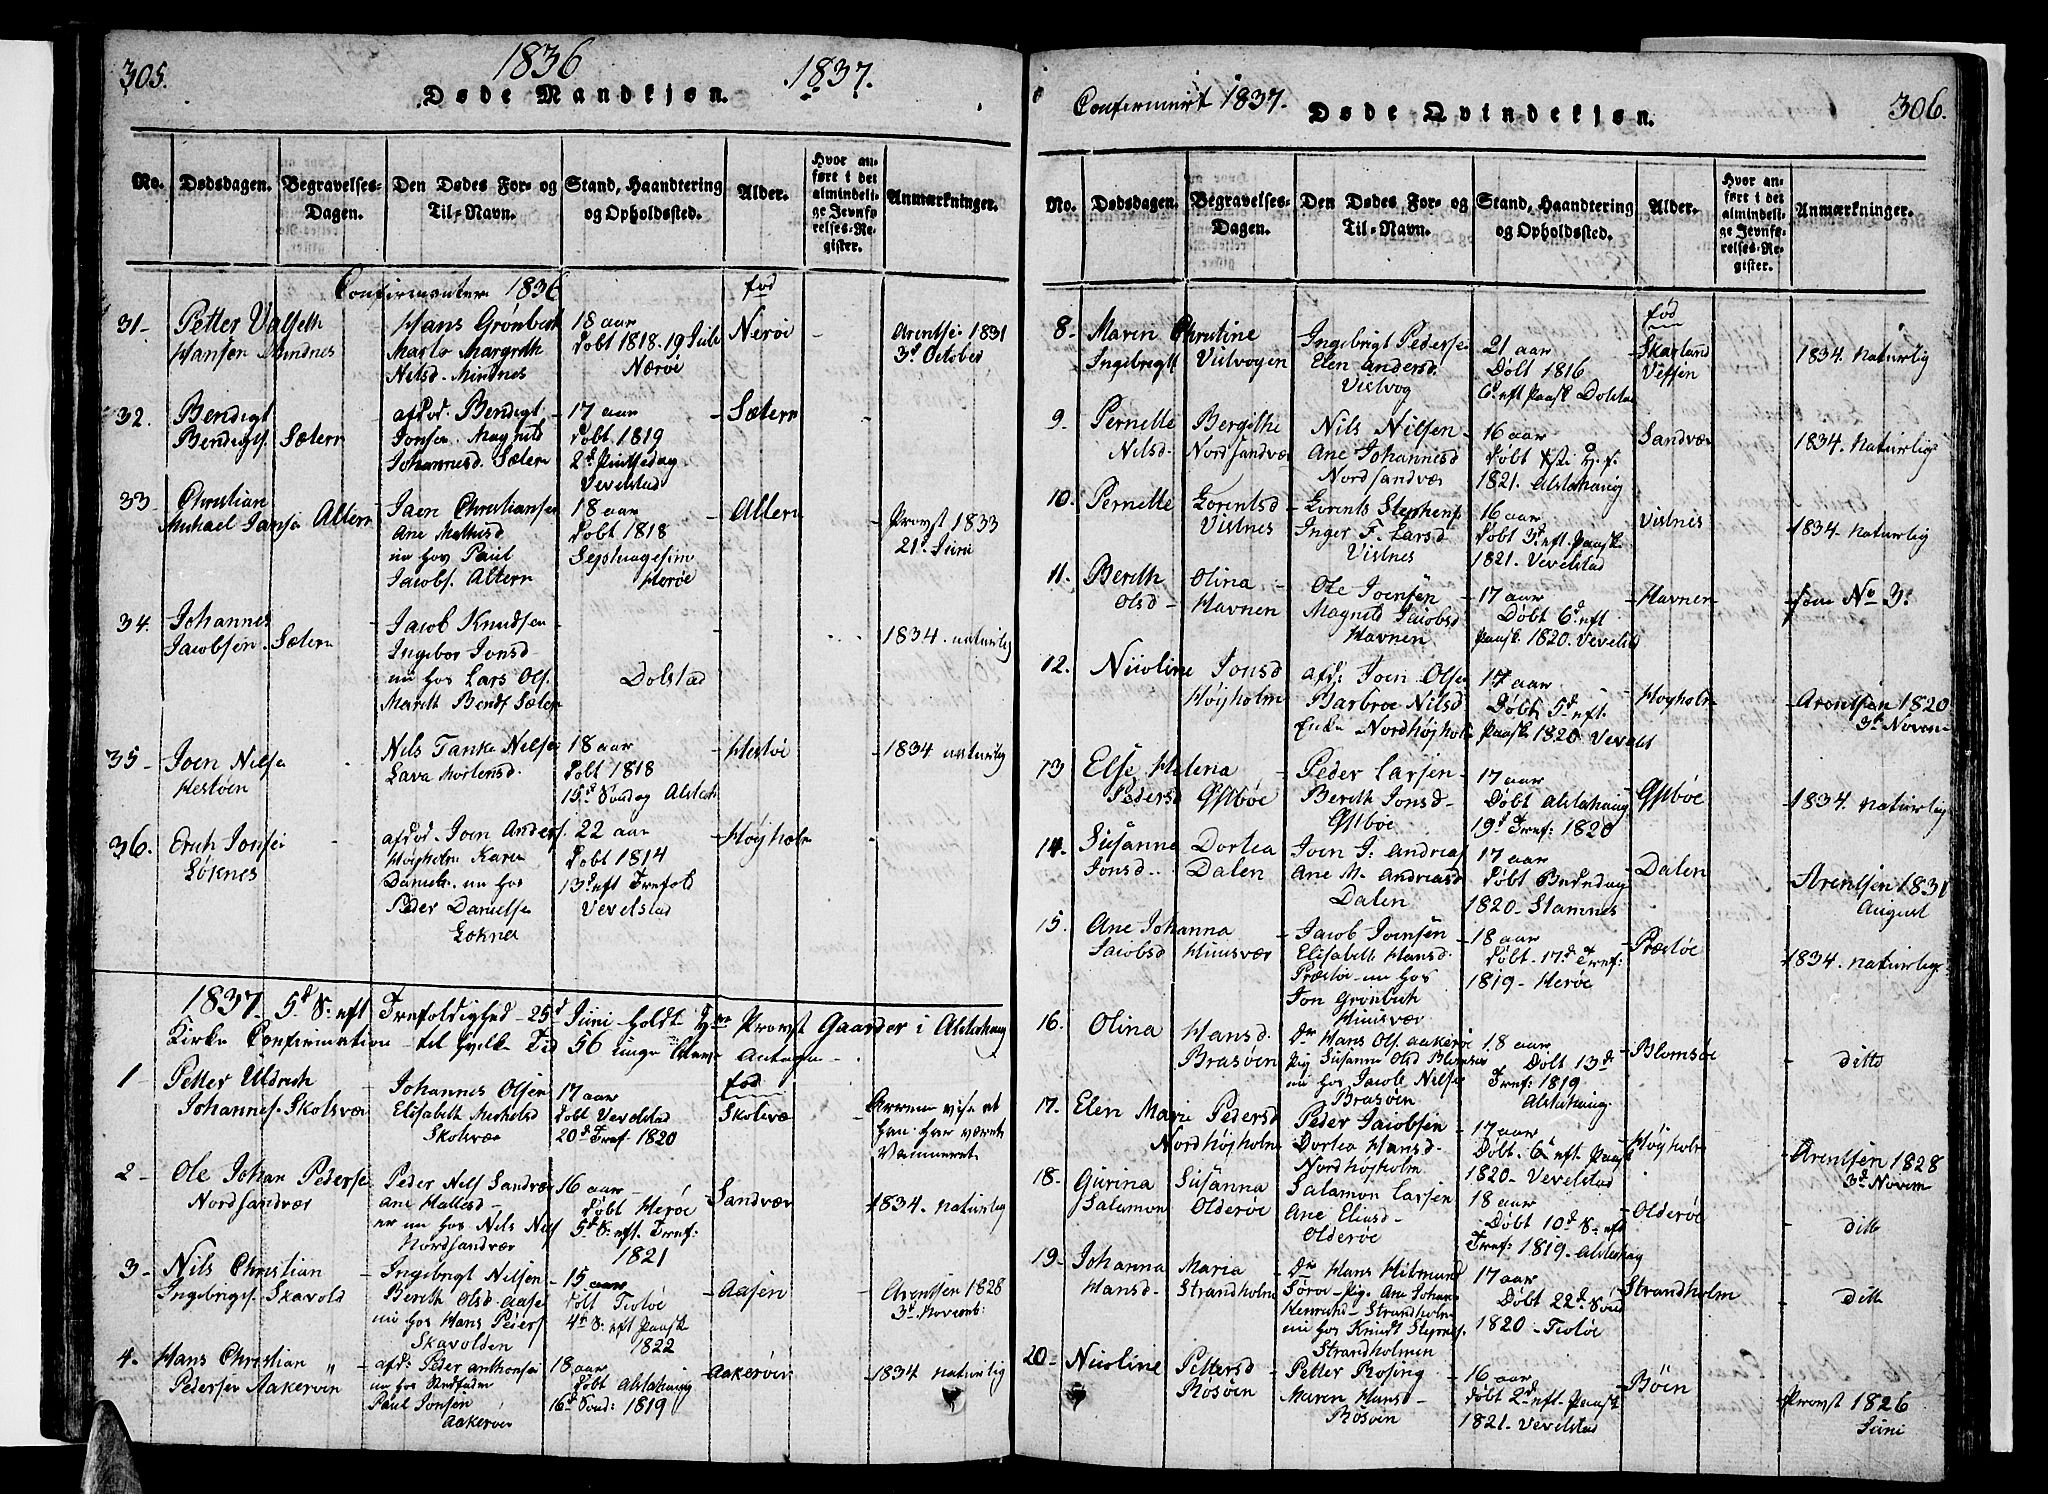 305.
1836
1837.
Døde Mandkjøn.
No.
Dødsdagen.
Begravelses-
Dagen.
Den Dødes For- og
Til-Navn.
Stand, Haandtering
og Opholdssted.
Alder.
Hvor an-
ført i det
almindeli-
ge Jevnfø-
relses-Re-
gister.
Anmærkninger.
Confirmanter 1836
fød
31-
Petter Valseth
Hansen Mindnes
Hans Grønbech
Marta Margreth
Nilsd. Mindnes
18 aar
Døbt 1818. 19 Juli
Nærøi
Nerøi
Arentsen 1831
3d October
32.
Bendigt
Bendigts. Sætern
afdød. Bendigt
Jonsen. Magnild
Johannesd. Sætern
17 aar
Døbt 1819
2d Pintsedag
Vevelstad
Sætern
33
Christian
Michael Jansen Altern
Jaen Christiansen
Ane Mathisd
nu hos Paul
Jacobs. Altern
18 aar
Døbt 1818
Septuagesim
Herøe
Altern
Provst 1833
21d Juni
34.
Johannes
Jacobsen. Sætern
Jacob Knudsen
Ingebor Jonsd
nu hos Lars Ols.
Marith Bends Sætern
Dolstad
1834. naturlig
35-
Joen Nilsen
Hestøen
Nils Tanke Nilsen
Lava Mortensd.
18 aar
Døbt 1818
15d Sondag Alstah
Hestøi
1834 naturlig
36.
Erich Jonsen
Løknes
afdød. Joen Anders.
Høyholm Karen
Daniels. nu hos
Peder Danielsen
Løknes
22 aar
Døbt 1814
13d eft Trefold
Vevelstad
Høyholm
1837. 5d S: eft Trefoldighed - 25d Juni holdt Hr Provst Gaarder i Alstahaug
Kirke Confirmation - til hvilken Tid 56 unge bleve Antagne.
1-
Petter Uldrich
Johannes. Skolsvær
Johannes Olsen
Elisabeth Michelsd
Skolsvær
17 aar
Døbt Vevelstad
20d Tref: 1820
fød
Skolsvær
Arrene vise at
han har været
Vaxineret
2-
Ole Johan Pedersen
Nordsandvær
Peder Nils Sandvær
Ane Hallesd
er nu hos Nils Nils
Nordsandvær
16 aar
Døbt Herøe
5d S: eft. Tref:
1821
Sandvær
1834. naturlig
3-
Nils Christian
Ingebrigts. Skavold
Ingebrigt Nilsen
Berith Olsd Aasen
nu hos Hans Peders
Skavolden
15 aar
Døbt Tiøtøe
4d S: eft Paask
1822
Aasen
Arentsen 1828
3d Novemb:
4.
Hans Christian
Pedersen Aakerøen
afd: Peder Anthonsen
nu hos Stedfader
Paul Jonsen
Aakerøen
18 aar
Døbt Alstahaug
16d Sond: 1819
Aakerøen
1834 naturlig
306.
Confermert 1837.
Døde Qvindekjøn.
No.
Dødsdagen.
Begravelses-
Dagen.
Den Dødes For- og
Til-Navn.
Stand, Haandtering
og Opholdssted.
Alder.
Hvor an-
ført i det
almindeli-
ge Jevnfø-
relses-Re-
gister.
Anmærkninger.
fød
8-
Maren Christine
Ingebrigts Vistvogen
Ingebrigt Pedersen
Elen Andersd.
Vistvog
21 aar
Døbt 1816
6d eft Paask Dolstad
Skarland
Vefsen
1834. naturlig
9-
Pernelle Bergithe
Nilsd. Nordsandvær
Nils Nilsen
Ane Johannesd
Nordsandvær
16 aar
1821. Alstahaug
Sandvær
1834. naturlig
10.
Pernelle Lorentsd
Vistnes
Lorents Stephens
Inger F. Larsd
Vistnes
16 aar
Døbt 3d eft. Paask
1821. Vevelstad
Vistnes
1834. naturlig
11.
Berith Olina
Olsd Havnen
Ole Joensen
Magnild Jacobsd
Havnen
17 aar
Døbt 6d eft
Paask 1820. Vevelstad
Havnen
som No 3.
12.
Nicoline Jonsd
Høyholm
afd: Joen Olsen
Barbroe Nilsd
Enke Nordhøyholm
17 aar
Døbt 5d eft.
Paask 1820 Vevelst
Høyholm
Arentsen 1820
3d Novem
13
Else Helena
Pedersd Østbøe
Peder Larsen
Berith Jonsd
Østbøe
17 aar
Døbt Alstahaug
19d Tref: 1820
Østbøe
1834. naturlig
14.
Susanne Dortea
Jonsd. Dalen
Joen J: Andreas
Ane M. Andreasd
Dalen
17 aar
Døbt Bededag
1820. Stamnes
Dalen
Arentsen 1831
August
15.
Ane Johanna
Jacobsd Huusvær
Jacob Joensen
Elisabeth Hansd.
Præstøe nu hos
Jon Grønbech
Huusvær
18 aar
Døbt. 17d Tref:
1819 - Herøe
Præstøe
1834. naturlig
16.
Olina Hansd.
Brasøen
Dr Hans Ols. Aakerøe
Pig Susanna Olsd Blomsøe
nu hos Jacob Nilsen
Brasøen
18 aar
Døbt 13d
Tref: 1819
Alstahaug
Blomsøe
ditto
17.
Elen Maria Pedersd
Nordhøjholm
Peder Jacobsen
Dortea Hansd.
Nordhøjholm
17 aar
Døbt. 6 eft Paask
1820. Vevelstad
Høyholm
Arentsen 1828
3d Novem
18.
Gurina Susanna
Salamon Olderøe
Salamon Larsen
Ane Eliasd
Olderøe
18 aar
Døbt 10d S: eft
Tref: 1819. Alstahaug
Olderøe
ditto
19.
Johanna Maria
Hansd. Strandholm
Dr Hans Hitmund
Sørøe. Pig. Ane Johan
Strandholm
nu hos Knudt Styrnes.
Strandholmen
17 aar
Døbt 22d Sønd
1820 - Tiøtøe
Strandholm
ditto
20-
Nicoline Pettersd
Rosøen
Petter Rosing
Maren Hansd
Rosøen
16 aar
Døbt 2d eft. Paask
1821. Vevelstad
Bøen
Provst 1826
Juni